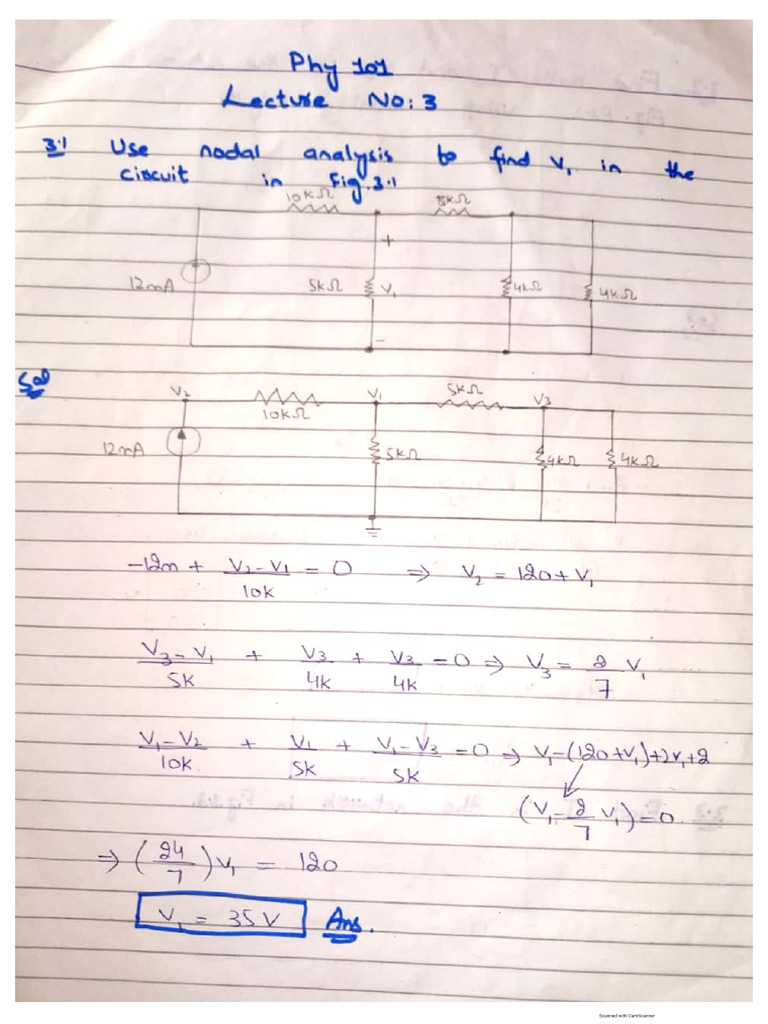 Phy 101
Lecture No: 3
3.1 Use nodal analysis to find V₁ in the
circuit in Fig.3.1
10KΩ 5KΩ
+
12mA 5KΩ V₁ 4KΩ 4KΩ
-
Sol
V₂ 10KΩ V₁ 5KΩ V₃
12mA 5KΩ 4KΩ 4KΩ
-12m + (V₂-V₁)/10k = 0 ⇒ V₂ = 120 + V₁
(V₃-V₁)/5K + V₃/4K + V₃/4K = 0 ⇒ V₃ = 2/7 V₁
(V₁-V₂)/10K + V₁/5K + (V₁-V₃)/5K = 0 ⇒ V₁-(120+V₁)+2V₁+2
(V₁-2/7 V₁) = 0
⇒ (24/7)V₁ = 120
V₁ = 35V Ans.
Scanned with CamScanner